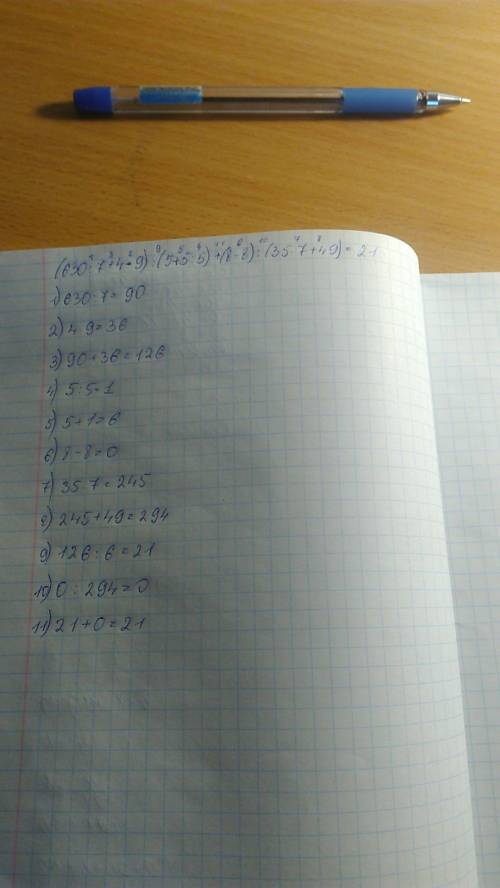 (630:7+4·9):(5+5:5)+(8-8):(35·7+49)=21
1) 630:7=90
2) 4·9=36
3) 90+36=126
4) 5:5=1
5) 5+1=6
6) 8-8=0
7) 35·7=245
8) 245+49=294
9) 126:6=21
10) 0:294=0
11) 21+0=21